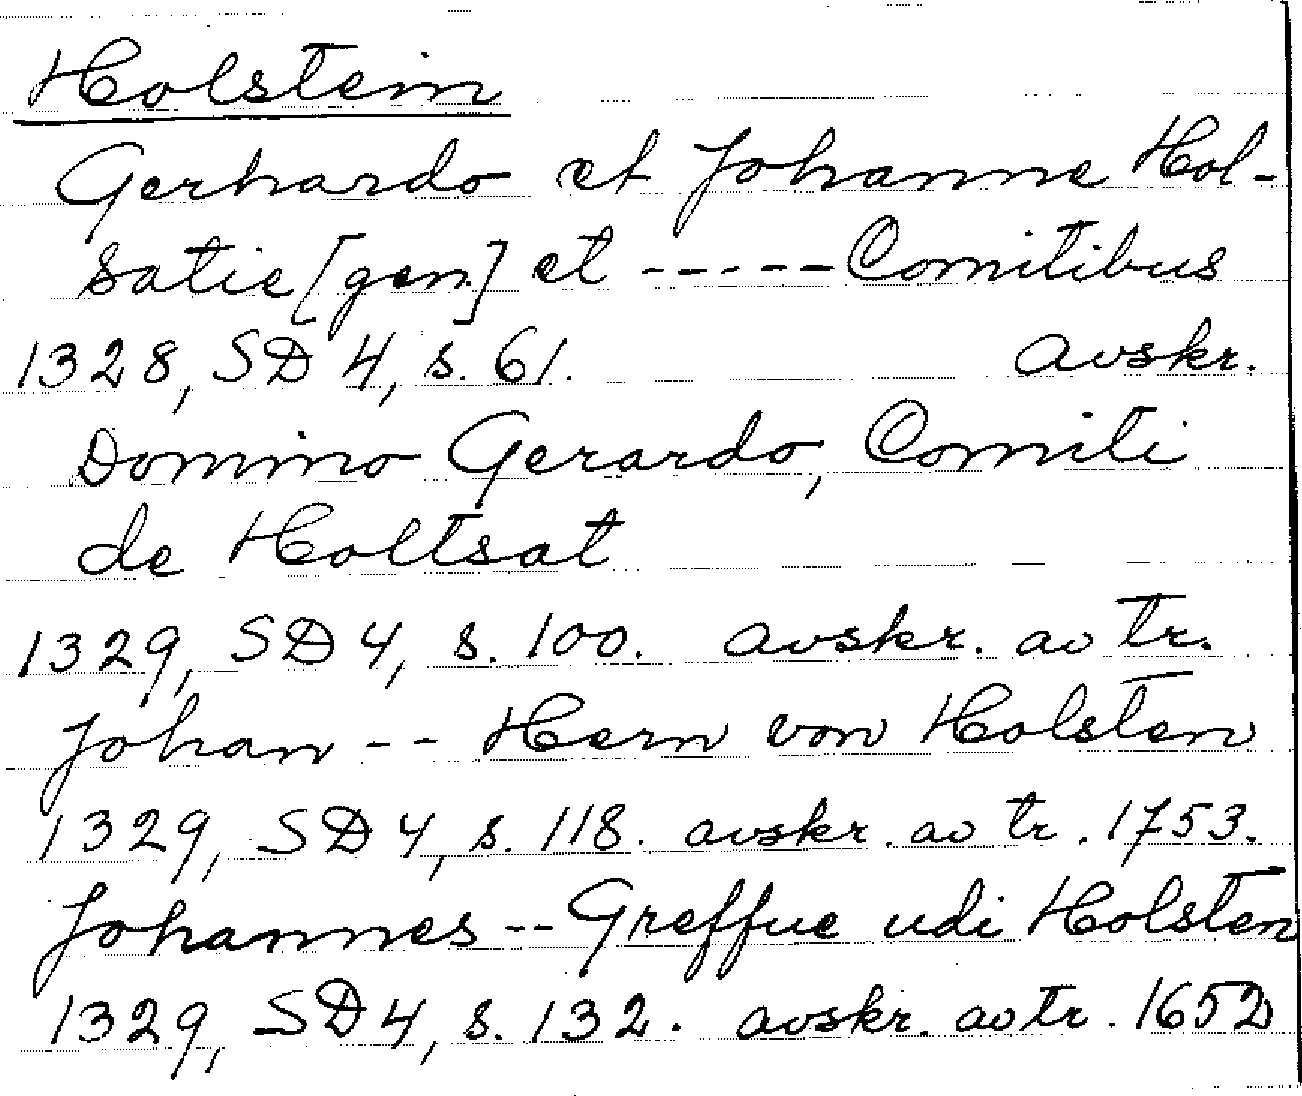 Holstein
Gerhardo et Johanne Hol-
satie [gen] et ----- Comitibus
1328, SD 4, s. 61. avskr.
Domino Gerardo, Comiti
de Holtsat
1329, SD 4, s. 100. avskr. av tr.
Johan -- Hern von Holsten
1329, SD 4, s. 118. avskr. av tr. 1753.
Johannes -- Greffue udi Holsten
1329, SD 4, s. 132. avskr. av tr. 1652